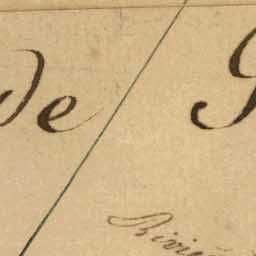 de
Riviè